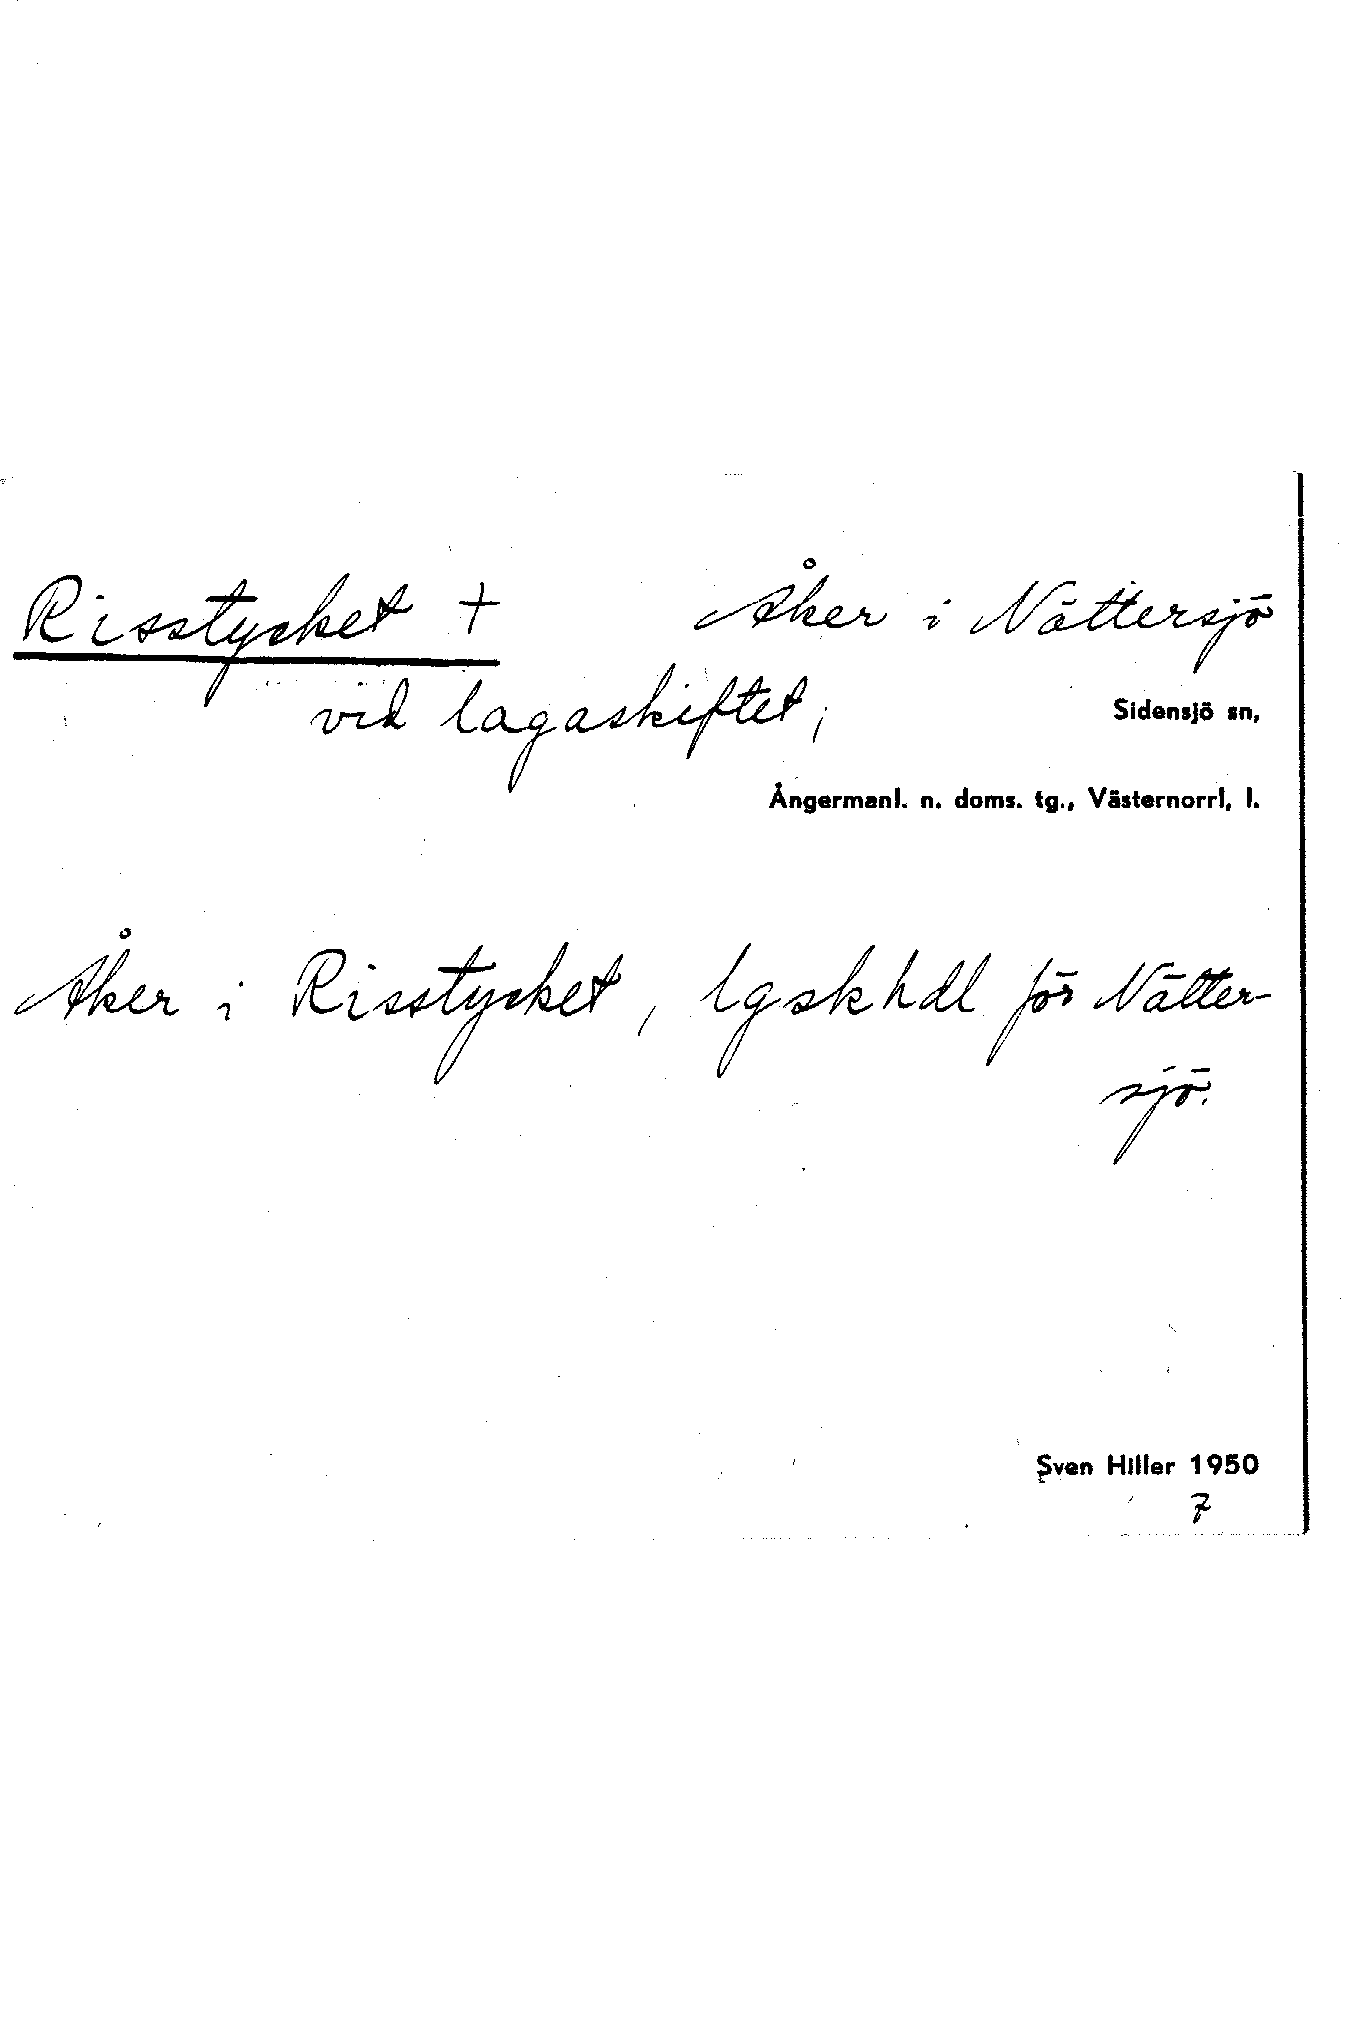 Risstycket + Åker i Nättersjö
vid lagaskiftet, Sidensjö sn,
Ångermanl. n. doms. tg., Västernorrl. l.
Åker i Risstycket, lgskhdl för Nätter-
sjö.
Sven Hiller 1950
7